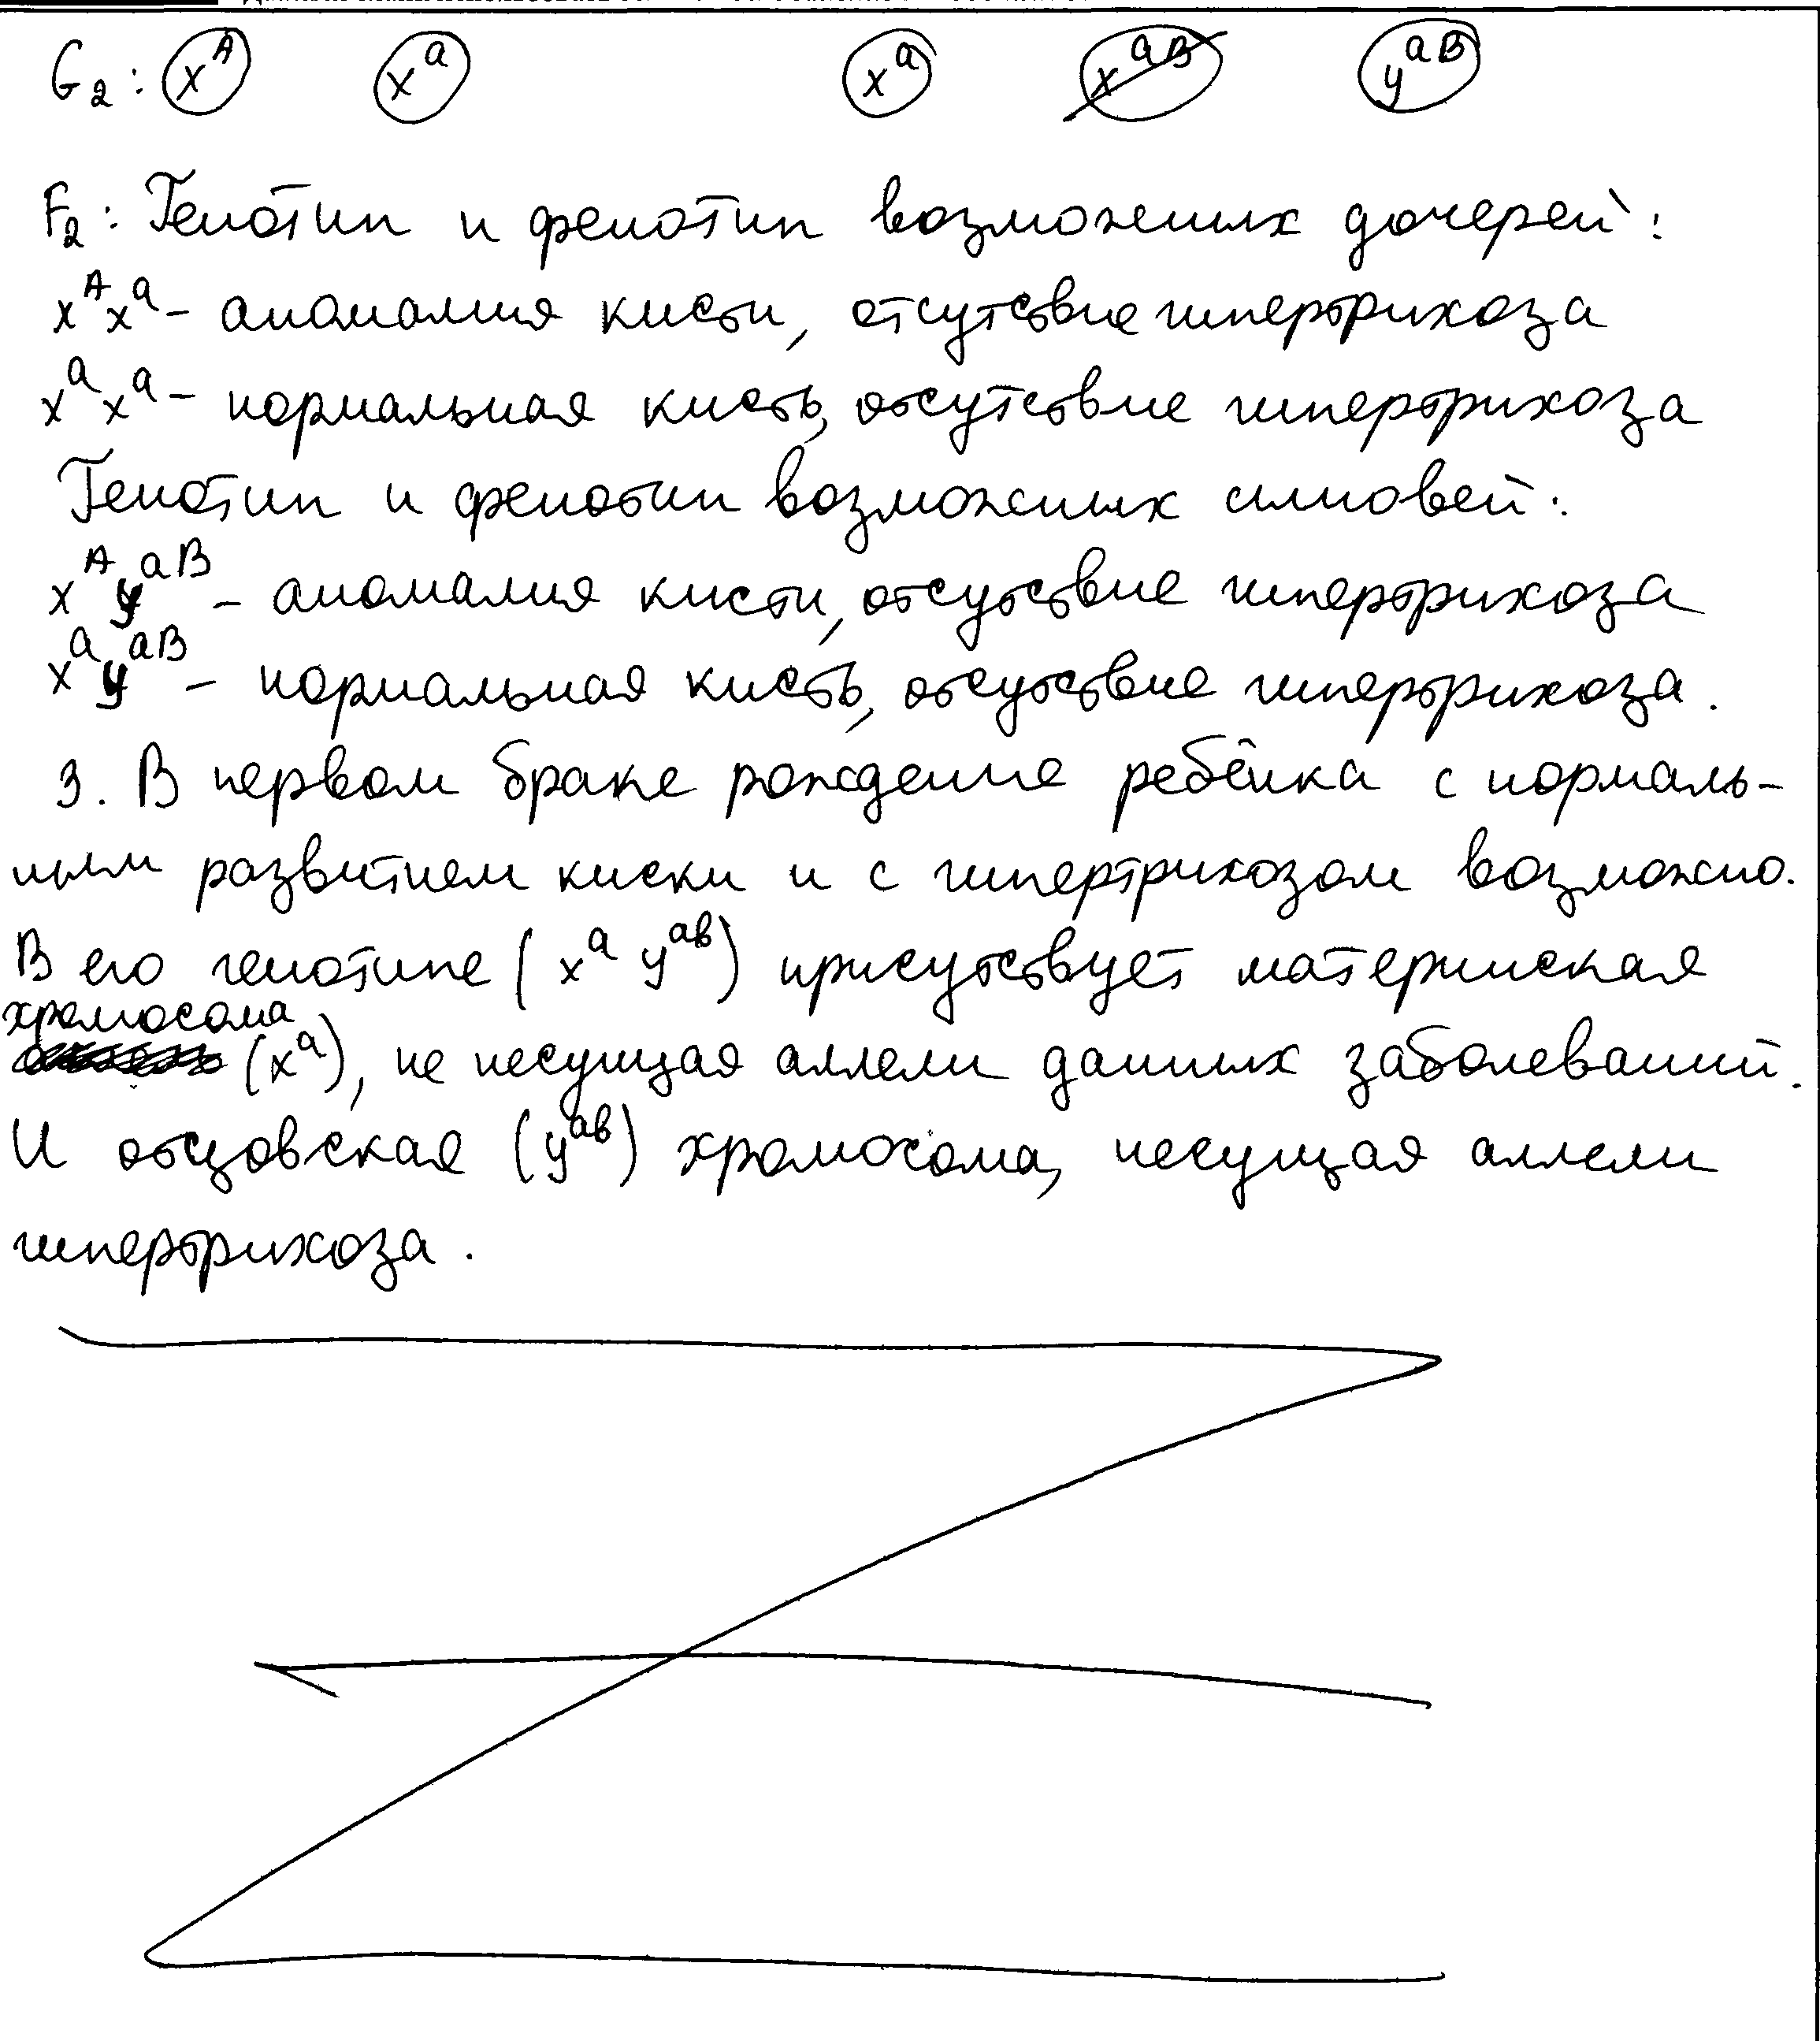 G₂: xᴬ xᵃ xᵃ xᵃᴮ yᵃᴮ
F₂: Генотип и фенотип возможных дочерей:
xᴬxᵃ – аномалия кисти, отсутствие гипертрихоза
xᵃxᵃ – нормальная кисть, отсутствие гипертрихоза
Генотип и фенотип возможных сыновей:
xᴬyᵃᴮ – аномалия кисти, отсутствие гипертрихоза
xᵃyᵃᴮ – нормальная кисть, отсутствие гипертрихоза.
3. В первом браке рождение ребёнка с нормаль-
ным развитием киски и с гипертрихозом возможно.
В его генотипе (xᵃ yᵃᵇ) присутствует материнская
хромосома
(xᵃ), не несущая аллели данных заболеваний.
И отцовская (yᵃᵇ) хромосома, несущая аллели
гипертрихоза.